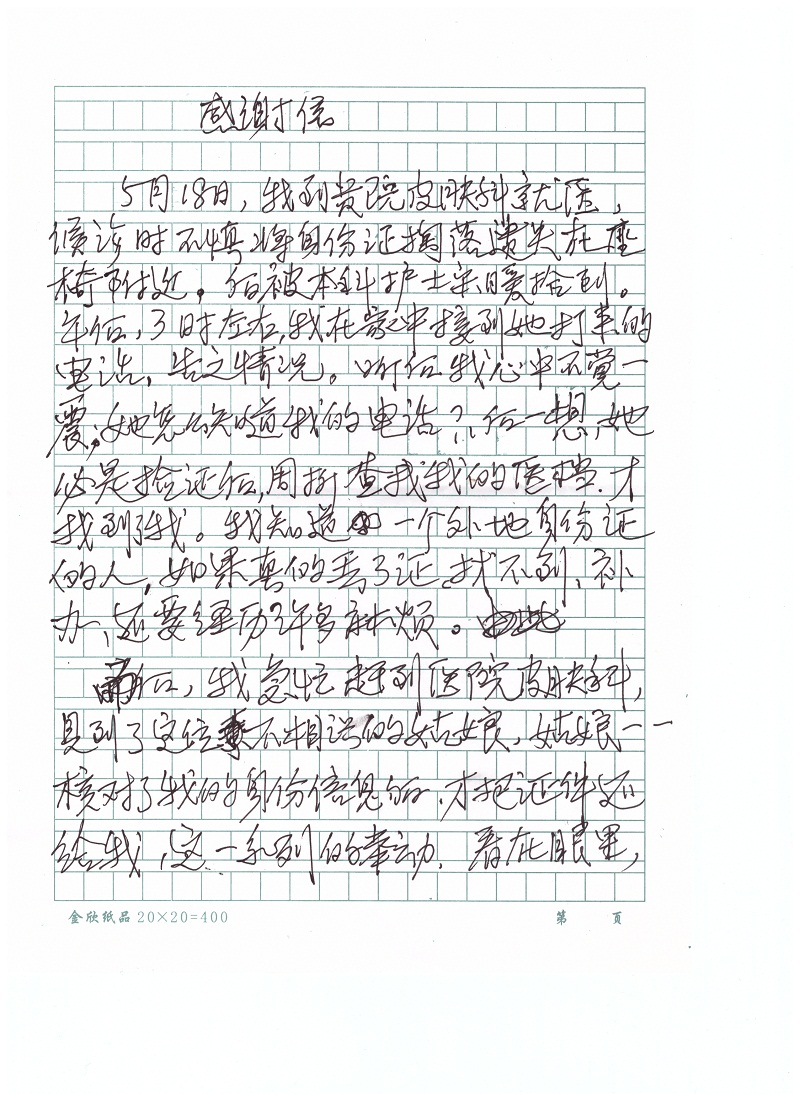 感谢信
5月18日，我到贵院皮肤科就医，
候诊时不慎将身份证掉落遗失在座
椅附近。后被本科护士宋暖捡到。
午后，3时左右，我在家中接到她打来的
电话，告之情况。听后我心中不觉一
震，她怎么知道我的电话？后一想，她
必是捡证后，周折查我我的医档，才
找到了我。我知道一个外地身份证
的人，如果真的丢了证，找不到，补
办，还要经历许多麻烦。
后，我急忙赶到医院皮肤科，
见到了这位不相识的姑娘，姑娘一一
核对了我的身份信息后，才把证件还
给我，这一系列的举动，看在眼里，
金欣纸品 20×20=400
第 页